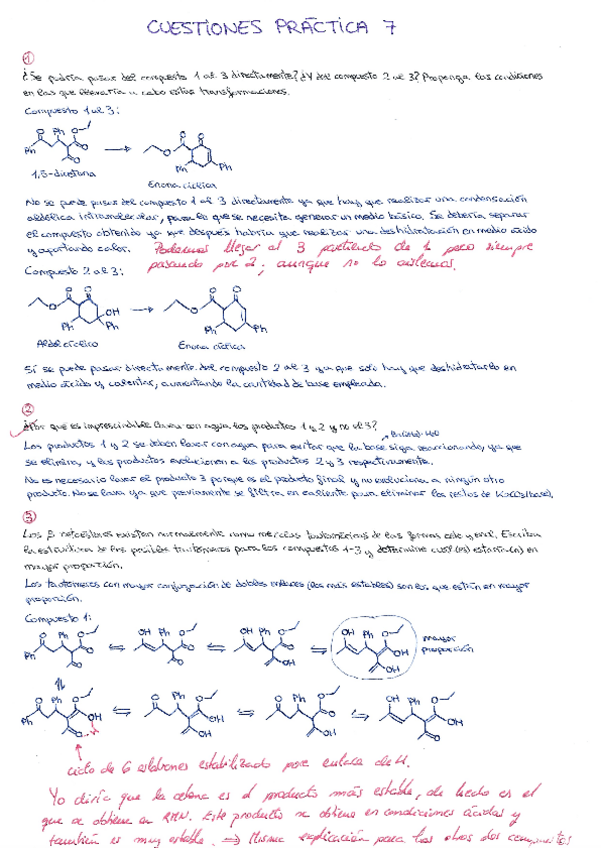 CUESTIONES PRÁCTICA 7
①
¿Se podría pasar del compuesto 1 al 3 directamente? ¿Y del compuesto 2 al 3? Proponga las condiciones
en las que llevaría a cabo estas transformaciones.
Compuesto 1 al 3:
O Ph O
Ph O O
O O O
Ph Ph
1,5-dicetona
Enona cíclica
No se puede pasar del compuesto 1 al 3 directamente ya que hay que realizar una condensación
aldólica intramolecular, para lo que se necesita generar un medio básico. Se debería separar
el compuesto obtenido ya que después habría que realizar una deshidratación en medio ácido
y aportando calor. Podemos llegar al 3 partiendo de 1 pero siempre
pasando por 2, aunque no lo aislemos.
Compuesto 2 al 3:
O O O OH Ph Ph
O O O Ph Ph
Aldol cíclico
Enona cíclica
Sí se puede pasar directamente del compuesto 2 al 3 ya que solo hay que deshidratarlo en
medio ácido y calentar, aumentando la cantidad de base empleada.
②
¿Por qué es imprescindible lavar con agua los productos 1 y 2 y no el 3?
Los productos 1 y 2 se deben lavar con agua para evitar que la base siga reaccionando, ya que
se elimina, y los productos evolucionen a los productos 2 y 3 respectivamente.
No es necesario lavar el producto 3 porque es el producto final y no evoluciona a ningún otro
producto. No se lava ya que previamente se filtra en caliente para eliminar los restos de
③
Los β-cetoésteres existen normalmente como mezclas tautoméricas de las forma ceto y enol. Escriba
la estructura de los posibles tautómeros para los compuestos 1-3 y determine cuál (es) estaría(n) en
mayor proporción.
Los tautómeros con mayor conjugación de dobles enlaces (los más estables) son los que están en mayor
proporción.
Compuesto 1:
mayor
proporción
ciclo de 6 eslabones estabilizado por enlace de H.
Yo diría que la cetona es el producto más estable, de hecho es el
que se obtiene en RMN. Este producto se obtiene en condiciones ácidas y
también es muy estable. ⇒ Misma explicación para los otros dos compuestos